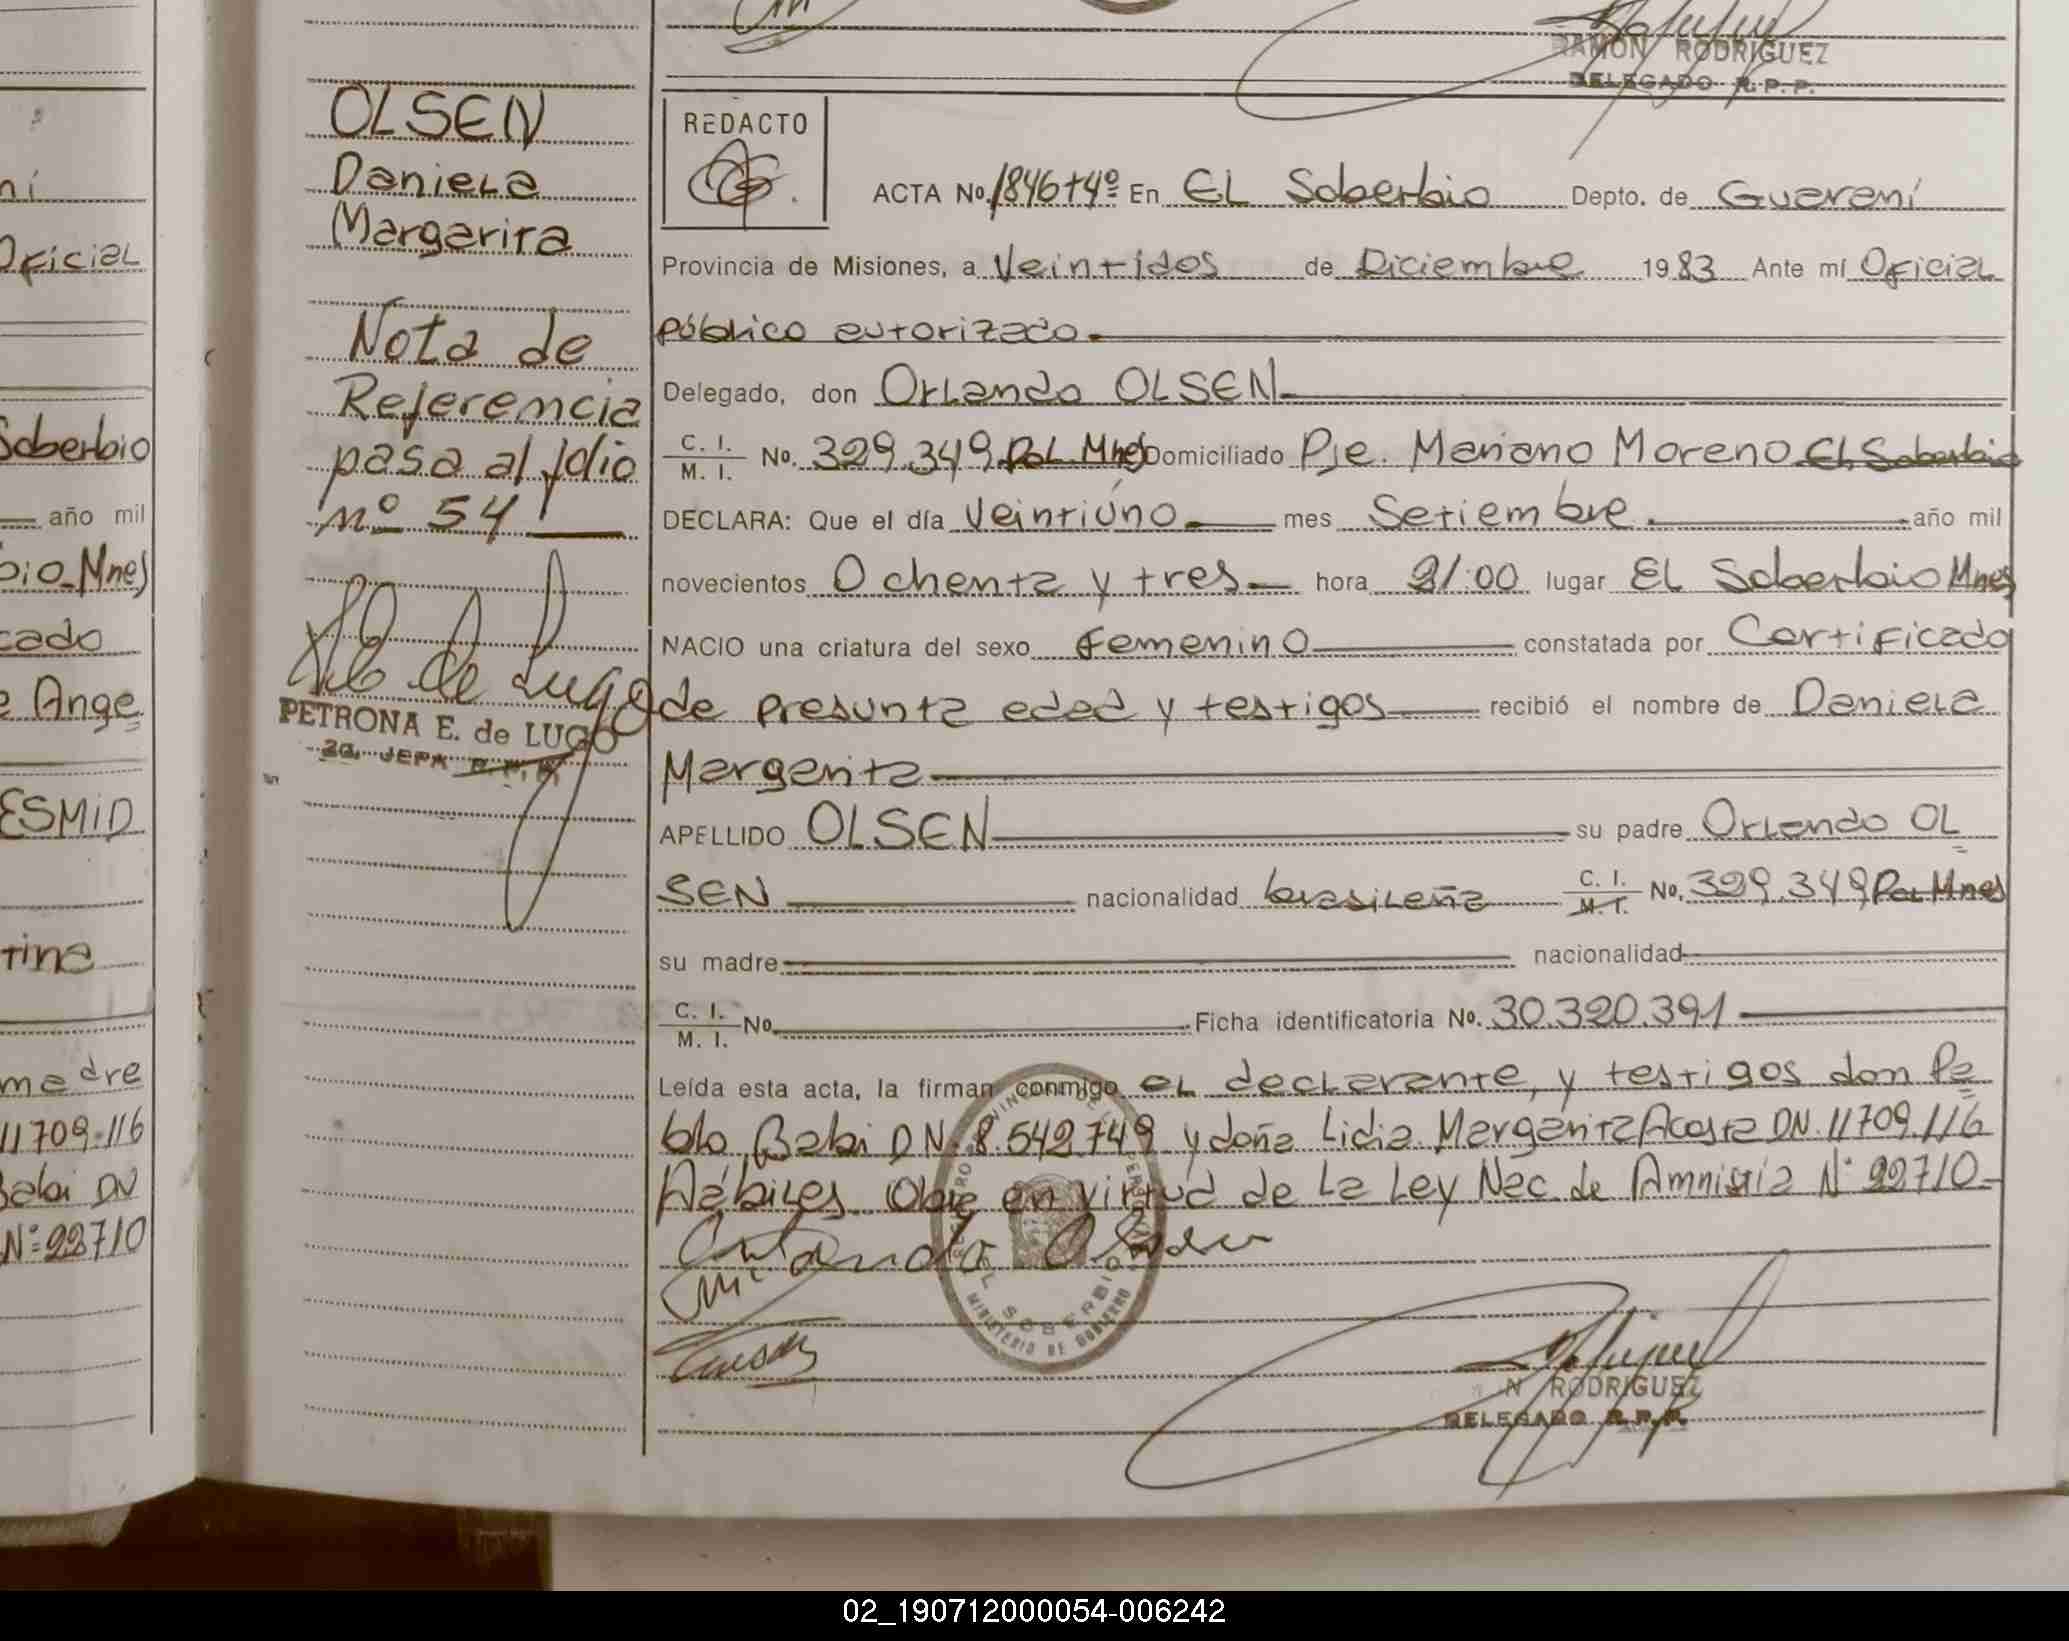 RAMON RODRIGUEZ
DELEGADO R.P.P.
OLSEN
Daniela
Margarita
Nota de
Referencia
pasa al folio
nº 54
PETRONA E. de LUGO
2a. JEFA R.P.P.
REDACTO
ACTA No. 1846+4º En El Soberbio Depto. de Guaraní
Provincia de Misiones, a Veintidos de Diciembre 1983 Ante mí Oficial
público autorizado
Delegado, don Orlando OLSEN
C. I.
M. I. No. 329.349 Pol. Mnes Domiciliado Pje. Mariano Moreno El Soberbio
DECLARA: Que el día Veintiúno mes Setiembre año mil
novecientos Ochenta y tres hora 21:00 lugar El Soberbio Mnes
NACIO una criatura del sexo femenino constatada por Certificado
de presunta edad y testigos recibió el nombre de Daniela
Margarita
APELLIDO OLSEN su padre Orlando OL
SEN nacionalidad brasileña C. I. M. I. No. 329.349 Pol Mnes
su madre nacionalidad
C. I.
M. I. No. Ficha identificatoria No. 30.320.391
Leída esta acta, la firman conmigo el declarante, y testigos don Pa
blo Babi DN. 8.542.749 y doña Lidia Margarita Acosta DN. 11709.116
Hábiles. Obre en virtud de la Ley Nac. de Amnistía Nº 22710
Orlando Olsen
EL SOBERBIO
MINISTERIO DE GOBIERNO
N RODRIGUEZ
DELEGADO R.P.P.
ní
Oficial
Soberbio
año mil
bio Mnes
cado
e Ange
ESMID
tina
madre
11709.116
Babi DN
Nº 22710
02_190712000054-006242